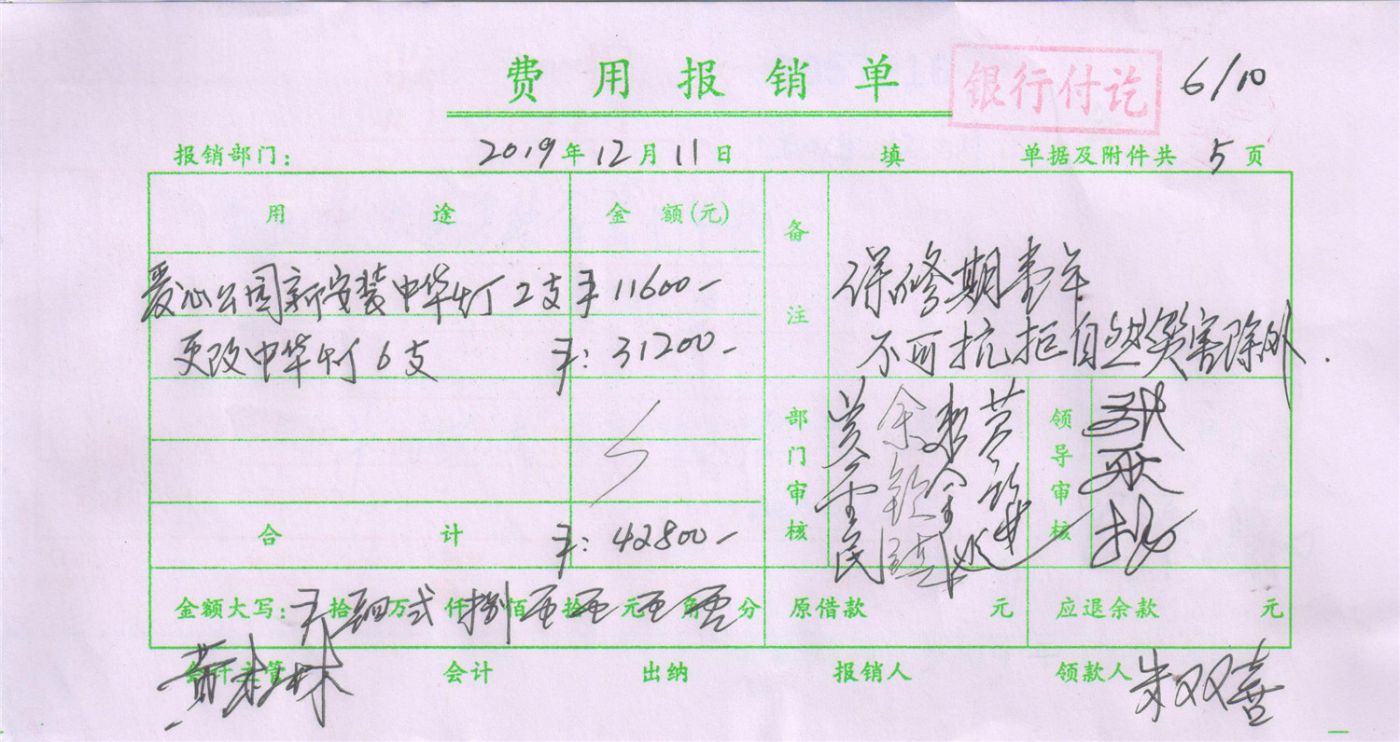 费用报销单 银行付讫 6/10
报销部门: 2019年12月11日 填 单据及附件共5页
用途 金额(元) 备注
爱心公园新安装中华灯2支 ¥11600-
更改中华灯6支 ¥:31200-
保修期壹年
不可抗拒自然灾害除外.
部门审核 领导审核
合计 ¥:42800-
金额大写: 拾肆万弍仟捌佰零拾零元零角零分 原借款 元 应退余款 元
会计主管 会计 出纳 报销人 领款人 朱双喜
黄桂林